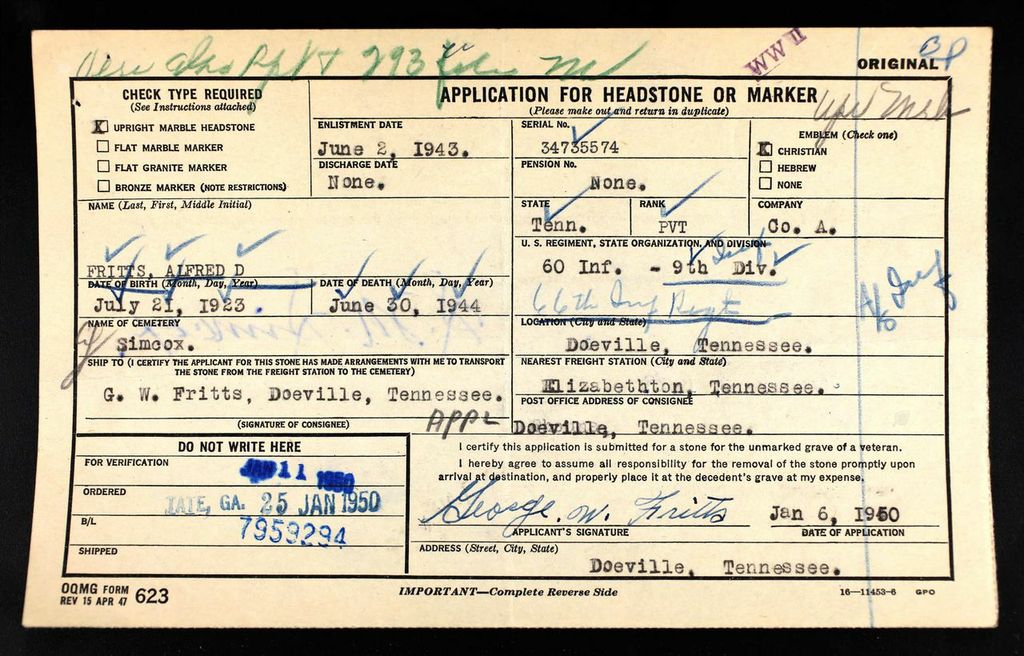 293
WW II
ORIGINAL
BP
CHECK TYPE REQUIRED
(See Instructions attached)
X UPRIGHT MARBLE HEADSTONE
FLAT MARBLE MARKER
FLAT GRANITE MARKER
BRONZE MARKER (NOTE RESTRICTIONS)
APPLICATION FOR HEADSTONE OR MARKER
(Please make out and return in duplicate)
ENLISTMENT DATE
June 2, 1943.
DISCHARGE DATE
None.
SERIAL No.
34735574
PENSION No.
None.
EMBLEM (Check one)
X CHRISTIAN
HEBREW
NONE
STATE
Tenn.
RANK
PVT
COMPANY
Co. A.
NAME (Last, First, Middle Initial)
FRITTS, ALFRED D
U. S. REGIMENT, STATE ORGANIZATION, AND DIVISION
60 Inf. - 9th Div.
66th Inf Regt
DATE OF BIRTH (Month, Day, Year)
July 21, 1923.
DATE OF DEATH (Month, Day, Year)
June 30, 1944
NAME OF CEMETERY
Simcox.
LOCATION (City and State)
Doeville, Tennessee.
SHIP TO (I CERTIFY THE APPLICANT FOR THIS STONE HAS MADE ARRANGEMENTS WITH ME TO TRANSPORT
THE STONE FROM THE FREIGHT STATION TO THE CEMETERY)
G. W. Fritts, Doeville, Tennessee.
(SIGNATURE OF CONSIGNEE)
APPL
NEAREST FREIGHT STATION (City and State)
Elizabethton, Tennessee.
POST OFFICE ADDRESS OF CONSIGNEE
Doeville, Tennessee.
DO NOT WRITE HERE
FOR VERIFICATION
JAN 11 1950
ORDERED
TATE, GA. 25 JAN 1950
B/L
7959294
SHIPPED
I certify this application is submitted for a stone for the unmarked grave of a veteran.
I hereby agree to assume all responsibility for the removal of the stone promptly upon
arrival at destination, and properly place it at the decedent's grave at my expense.
George. W. Fritts
Jan 6, 1950
APPLICANT'S SIGNATURE
DATE OF APPLICATION
ADDRESS (Street, City, State)
Doeville, Tennessee.
OQMG FORM
REV 15 APR 47 623
IMPORTANT—Complete Reverse Side
16—11453-6 GPO